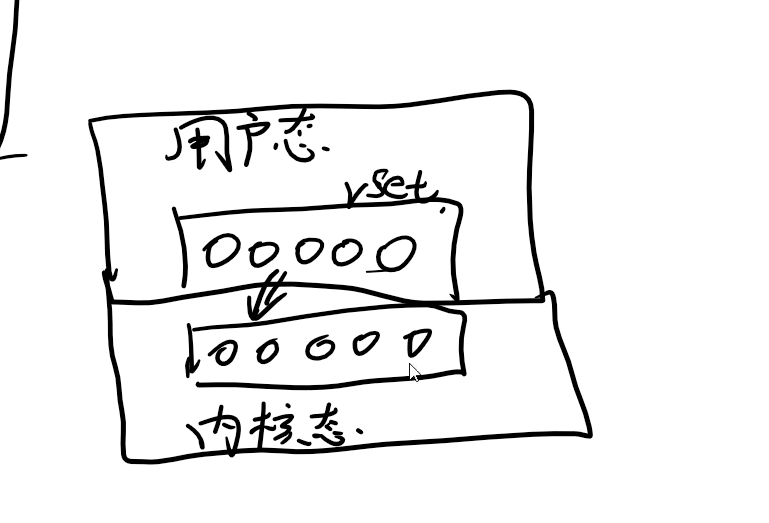 用户态.
rset.
00000
00000
内核态.